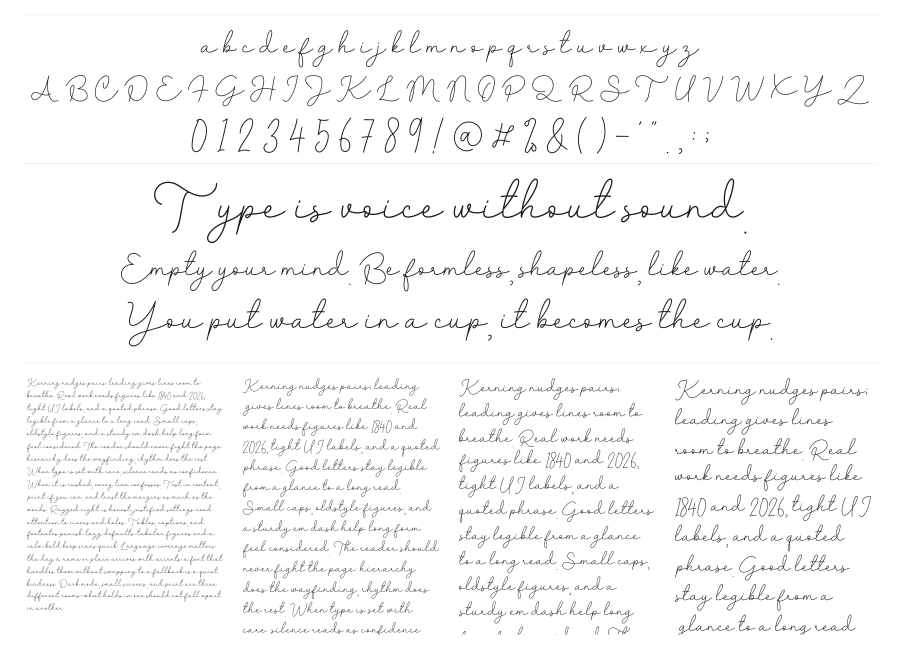 a b c d e f g h i j k l m n o p q r s t u v w x y z
A B C D E F G H I J K L M N O P Q R S T U V W X Y Z
0 1 2 3 4 5 6 7 8 9 ! @ # % & ( ) - ' " . , : ;
Type is voice without sound.
Empty your mind. Be formless, shapeless, like water.
You put water in a cup, it becomes the cup.
Kerning nudges pairs; leading gives lines room to
breathe. Real work needs figures like 1840 and 2026,
tight UI labels, and a quoted phrase. Good letters stay
legible from a glance to a long read. Small caps,
oldstyle figures, and a sturdy em dash help long form
feel considered. The reader should never fight the page:
hierarchy does the wayfinding, rhythm does the rest.
When type is set with care, silence reads as confidence.
When it is rushed, every line confesses. Test in context,
print if you can, and trust the margins as much as the
words. Ragged right is honest; justified settings need
attention to rivers and holes. Tables, captions, and
footnotes punish lazy defaults: tabular figures and a
calm bold keep scans quick. Language coverage matters
the day a name or place arrives with accents: a font that
handles them without swapping to a fallback is a quiet
kindness. Dark mode, small screens, and print are three
different rooms-what holds in one should not fall apart
in another.
Kerning nudges pairs; leading
gives lines room to breathe. Real
work needs figures like 1840 and
2026, tight UI labels, and a quoted
phrase. Good letters stay legible
from a glance to a long read.
Small caps, oldstyle figures, and
a sturdy em dash help long form
feel considered. The reader should
never fight the page: hierarchy
does the wayfinding, rhythm does
the rest. When type is set with
care, silence reads as confidence.
Kerning nudges pairs;
leading gives lines room to
breathe. Real work needs
figures like 1840 and 2026,
tight UI labels, and a
quoted phrase. Good letters
stay legible from a glance
to a long read. Small caps,
oldstyle figures, and a
sturdy em dash help long
Kerning nudges pairs;
leading gives lines
room to breathe. Real
work needs figures like
1840 and 2026, tight UI
labels, and a quoted
phrase. Good letters
stay legible from a
glance to a long read.